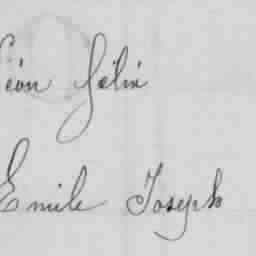 Léon Félix
Emile Joseph